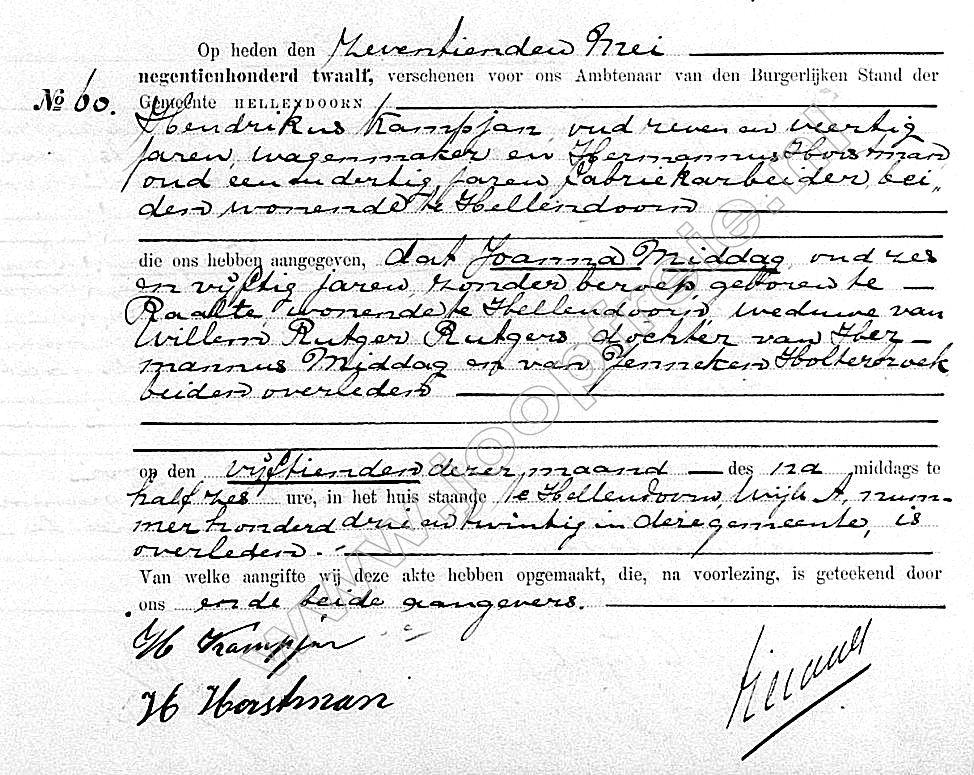 Op heden den Zeventienden Mei
negentienhonderd twaalf, verschenen voor ons Ambtenaar van den Burgerlijken Stand der
No 60. Gemeente HELLENDOORN
Hendrikus Kampjan, oud zeven en veertig
jaren, wagenmaker en Hermannus Horstman
oud een en dertig jaren fabriekarbeider bei„
den wonende te Hellendoorn
die ons hebben aangegeven, dat Joanna Middag, oud zes
en vijftig jaren, zonder beroep, geboren te
Raalte, wonende te Hellendoorn, weduwe van
Willem Rutger Rutgers, dochter van Her-
mannus Middag en van Jenneken Holterbroek
beiden overleden
op den vijftienden dezer maand des na middags te
half zes ure, in het huis staande te Hellendoorn Wijk A, num-
mer honderd drie en twintig in deze gemeente, is
overleden.
Van welke aangifte wij deze akte hebben opgemaakt, die, na voorlezing, is geteekend door
ons en de beide aangevers.
H Kampjan
H Horstman
www.jooptreie.nl